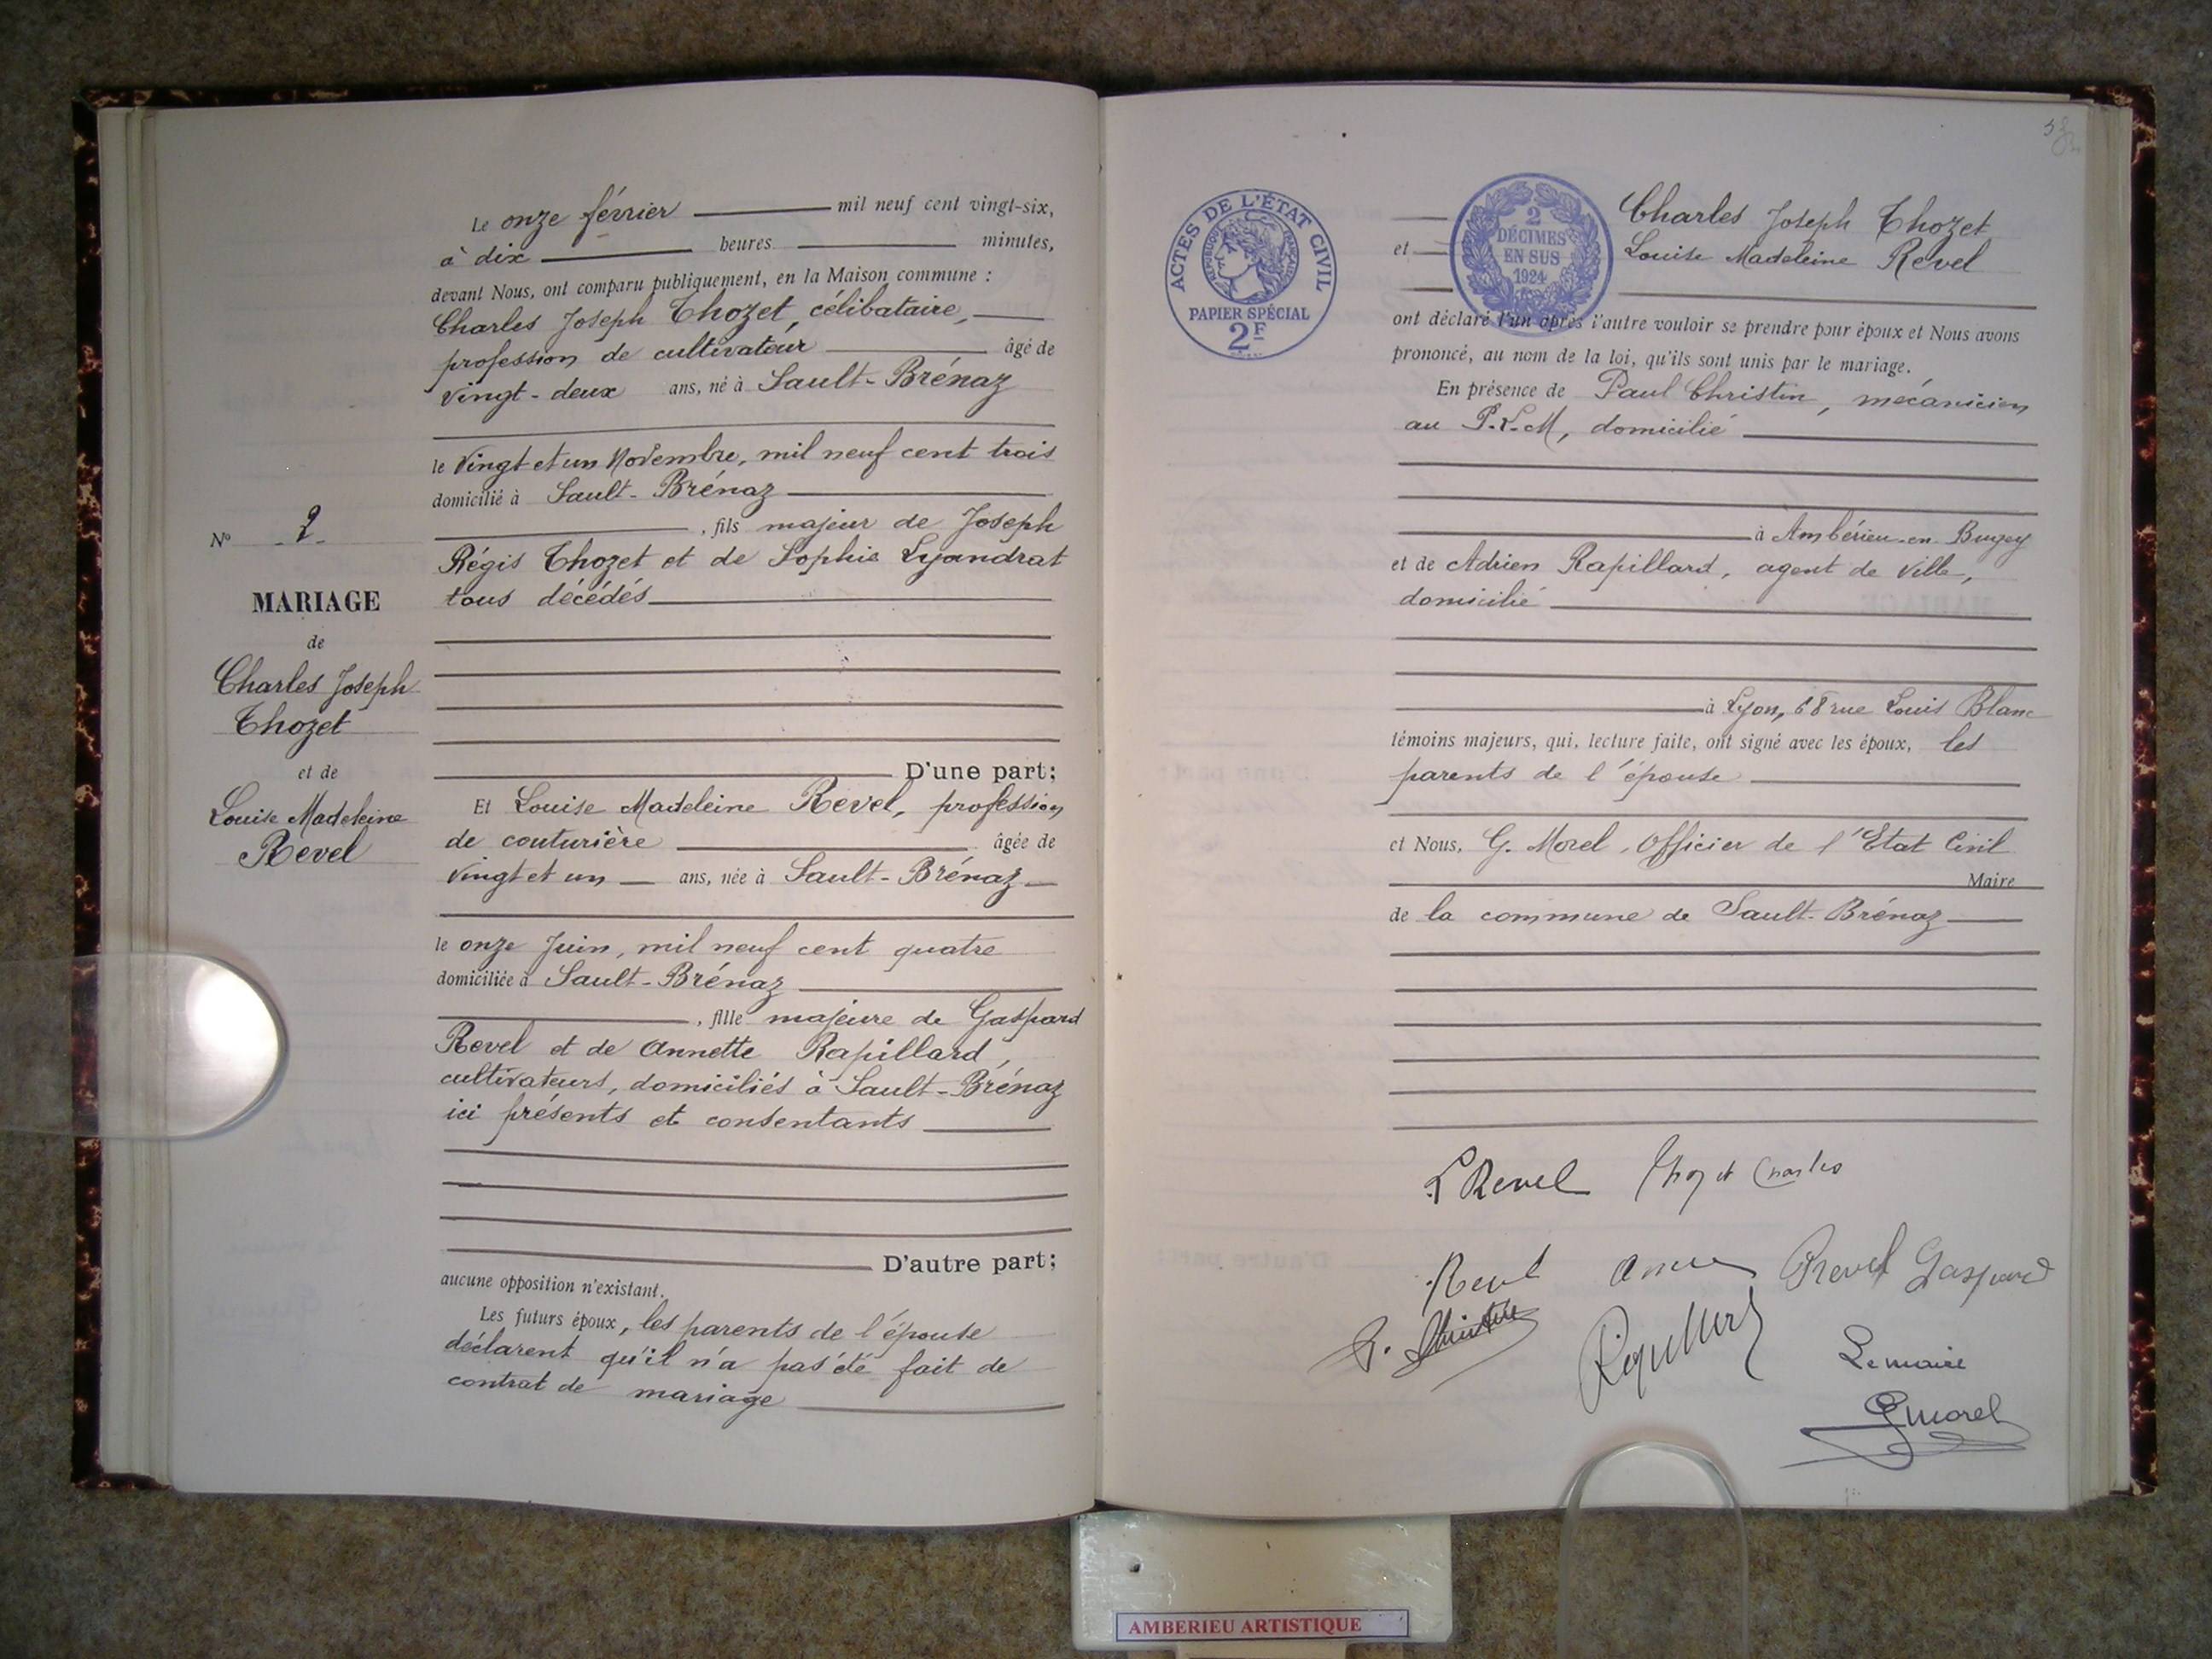 Le onze février mil neuf cent vingt-six,
à dix heures minutes,
devant Nous, ont comparu publiquement, en la Maison commune :
Charles Joseph Thozet, célibataire,
profession de cultivateur âgé de
vingt-deux ans, né à Sault-Brénaz
le vingt et un Novembre, mil neuf cent trois
domicilié à Sault-Brénaz
, fils majeur de Joseph
Régis Thozet et de Sophie Lyandrat
tous décédés
D'une part;
Et Louise Madeleine Revel, profession
de couturière âgée de
vingt et un ans, née à Sault-Brénaz
le onze Juin, mil neuf cent quatre
domiciliée à Sault-Brénaz
, fille majeure de Gaspard
Revel et de Annette Rapillard,
cultivateurs, domiciliés à Sault-Brénaz
ici présents et consentants
D'autre part;
aucune opposition n'existant.
Les futurs époux, les parents de l'épouse
déclarent qu'il n'a pas été fait de
contrat de mariage
N° 2
MARIAGE
de
Charles Joseph
Thozet
et de
Louise Madeleine
Revel
ACTES DE L'ÉTAT CIVIL
RÉPUBLIQUE FRANÇAISE
PAPIER SPÉCIAL
2F
2
DÉCIMES
EN SUS
1924
Charles Joseph Thozet
et Louise Madeleine Revel
ont déclaré l'un après l'autre vouloir se prendre pour époux et Nous avons
prononcé, au nom de la loi, qu'ils sont unis par le mariage.
En présence de Paul Christin, mécanicien
au P.L.M, domicilié
à Ambérieu-en-Bugey
et de Adrien Rapillard, agent de ville,
domicilié
à Lyon, 68 rue Louis Blanc
témoins majeurs, qui, lecture faite, ont signé avec les époux, les
parents de l'épouse
et Nous, G. Morel, Officier de l'Etat Civil
Maire
de la commune de Sault-Brénaz
L Revel Thozet Charles
Revel Revel Gaspard
P. Christin
Le maire
G Morel
AMBERIEU ARTISTIQUE